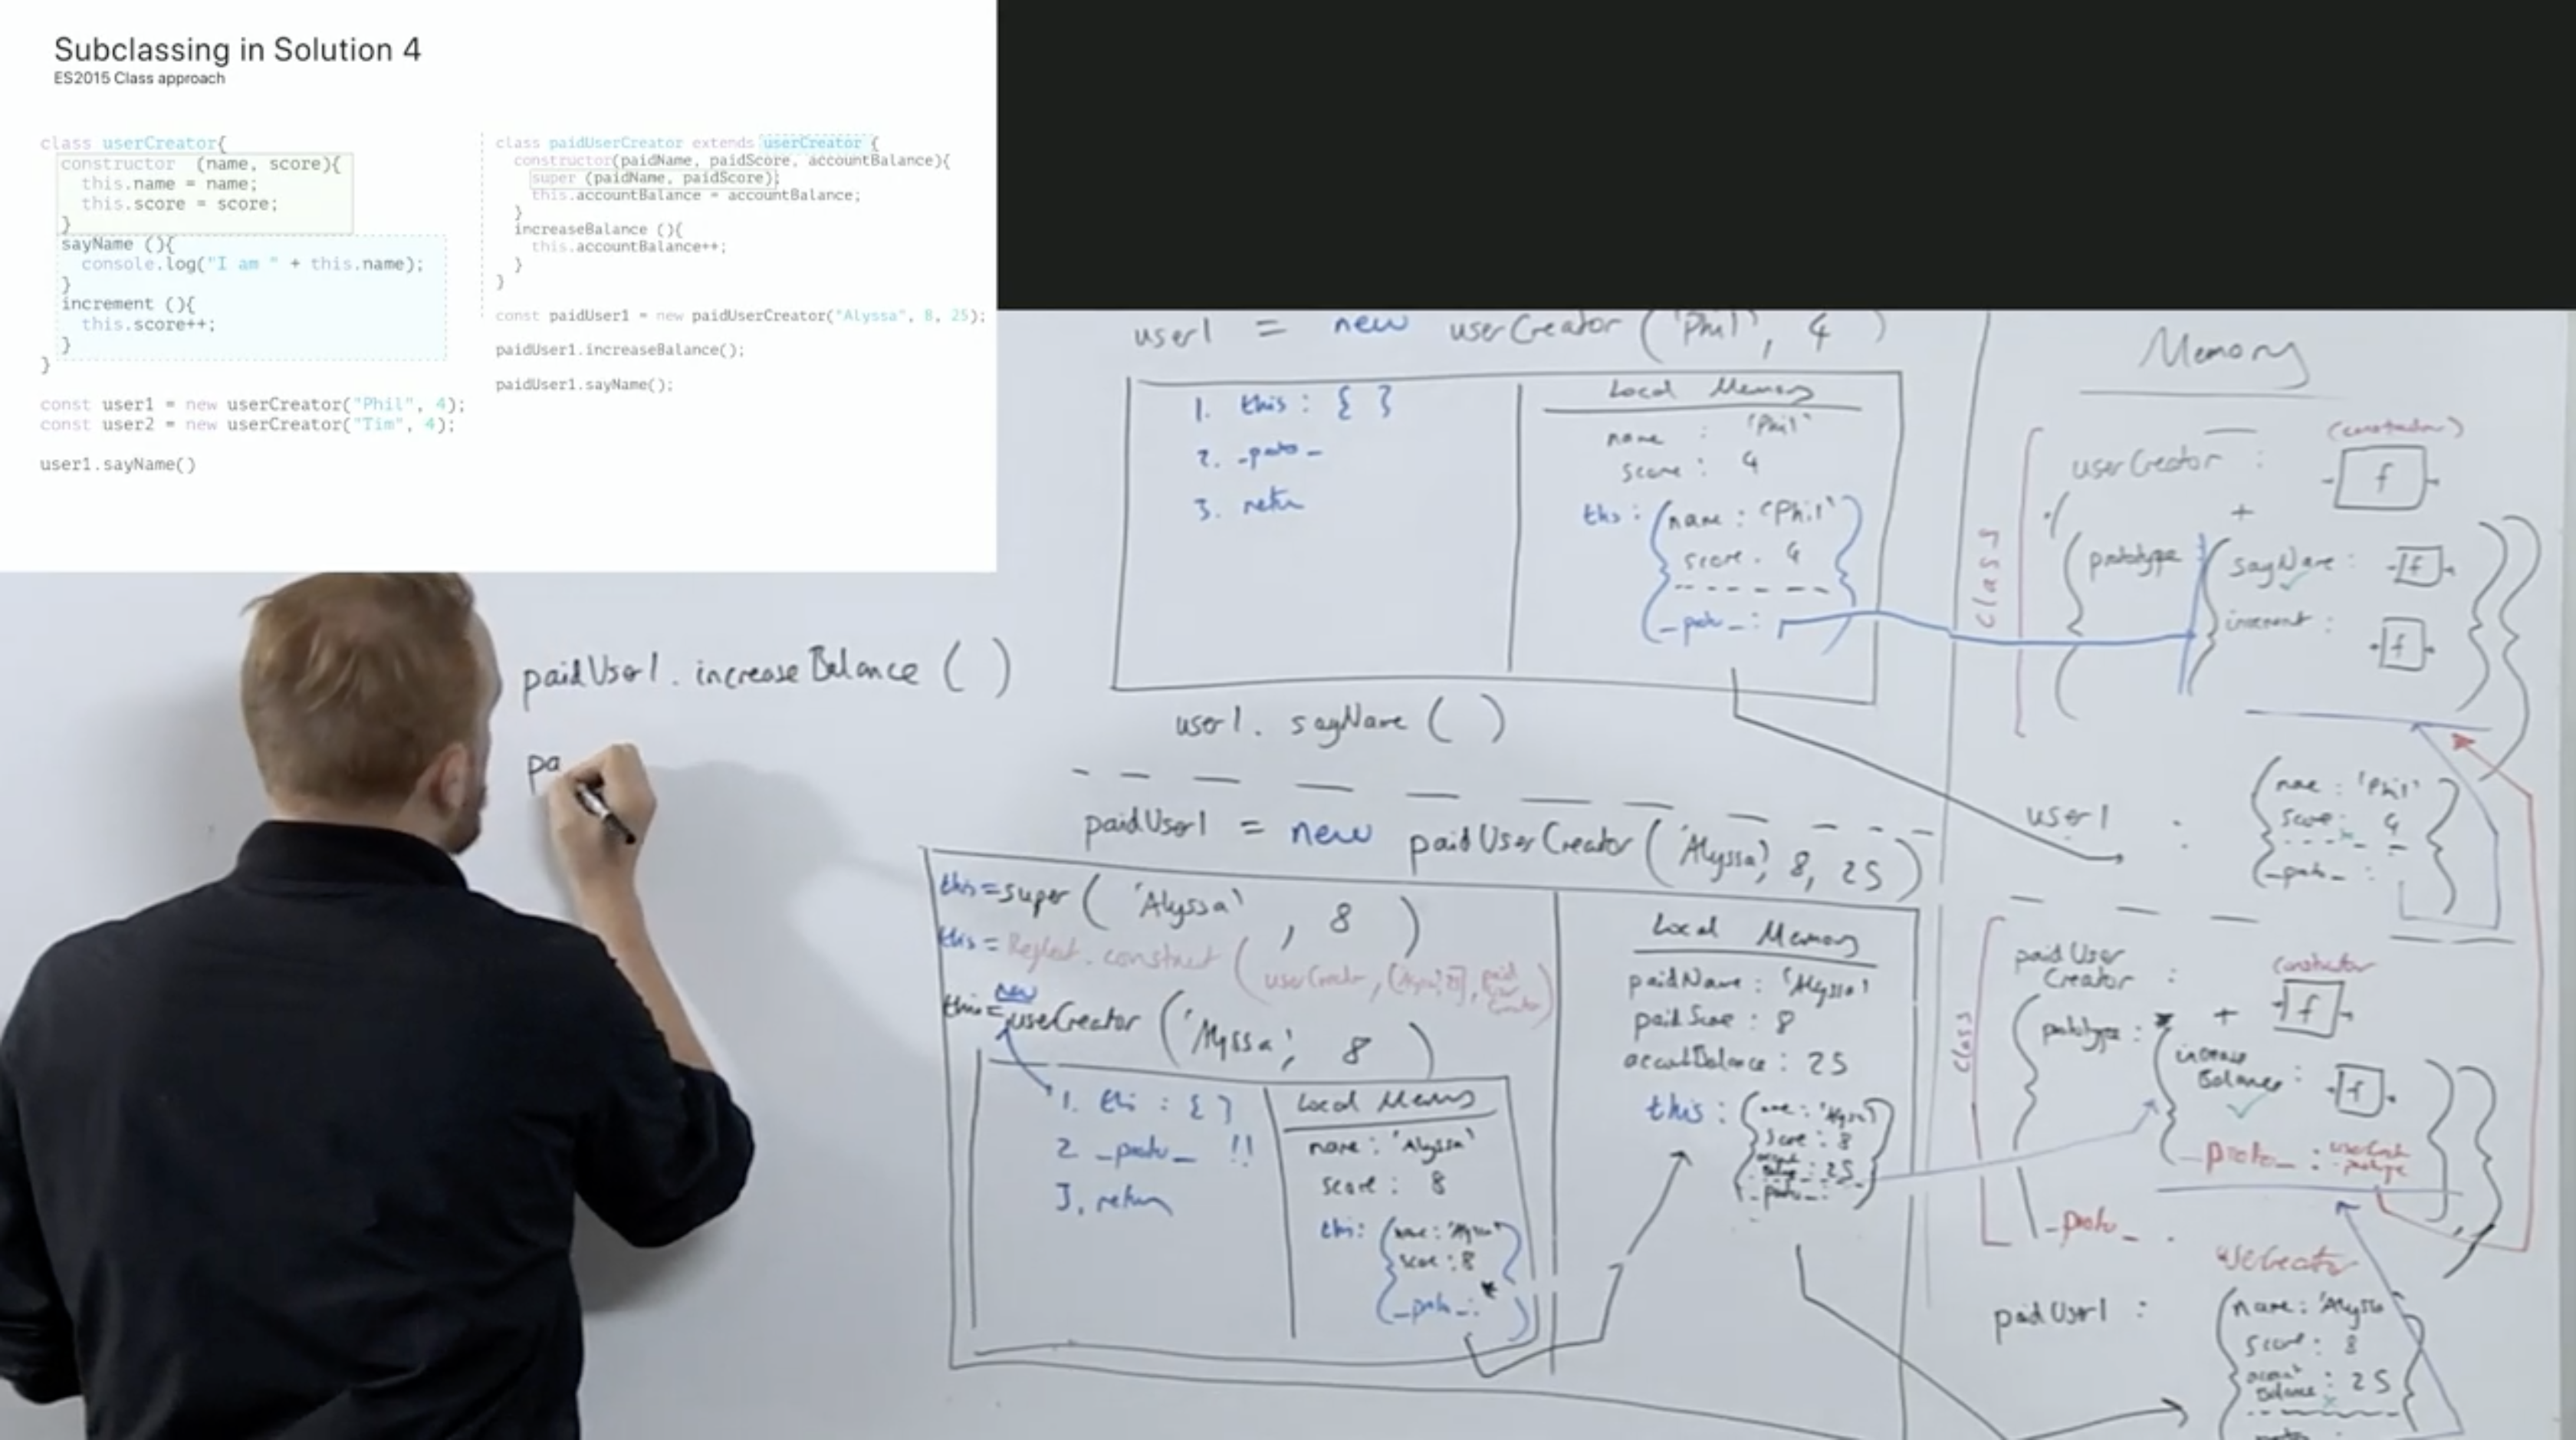 Subclassing in Solution 4
ES2015 Class approach
class userCreator{
constructor (name, score){
this.name = name;
this.score = score;
}
sayName (){
console.log("I am " + this.name);
}
increment (){
this.score++;
}
}
const user1 = new userCreator("Phil", 4);
const user2 = new userCreator("Tim", 4);
user1.sayName()
class paidUserCreator extends userCreator {
constructor(paidName, paidScore, accountBalance){
super (paidName, paidScore);
this.accountBalance = accountBalance;
}
increaseBalance (){
this.accountBalance++;
}
}
const paidUser1 = new paidUserCreator("Alyssa", 8, 25);
paidUser1.increaseBalance();
paidUser1.sayName();
paidUser1.increaseBalance ( )
pa
user1 = new userCreator ('Phil', 4 )
1. this : { }
2. _proto_
3. return
Local Memory
name : 'Phil'
score : 4
this : { name : 'Phil'
score : 4
_proto_ :
user1. sayName ( )
paidUser1 = new paidUserCreator ('Alyssa', 8, 25 )
this=super ( 'Alyssa' , 8 )
this = Reflect.construct ( userCreator, ['Alyssa', 8], paid User Creator )
new
this=userCreator ('Alyssa', 8 )
1. this : { }
2 _proto_ !!
3. return
Local Memory
name : 'Alyssa'
score : 8
this: { name : 'Alyssa'
score : 8
_proto_ : * }
Local Memory
paidName : 'Alyssa'
paidScore : 8
accountBalance : 25
this : { name : 'Alyssa'
score : 8
account Balance : 25
_proto_ : }
Memory
class
userCreator :
(constructor)
f
+
{ prototype { sayName : f
increment : f
user1 : { name : 'Phil'
score : 4
_proto_ : }
class
paid User
Creator :
constructor
f
+
{ prototype : * { increase
Balance : f
_proto_ : userCreator
.prototype
_proto_ :
userCreator
paidUser1 : { name : 'Alyssa'
score : 8
account
Balance : 25